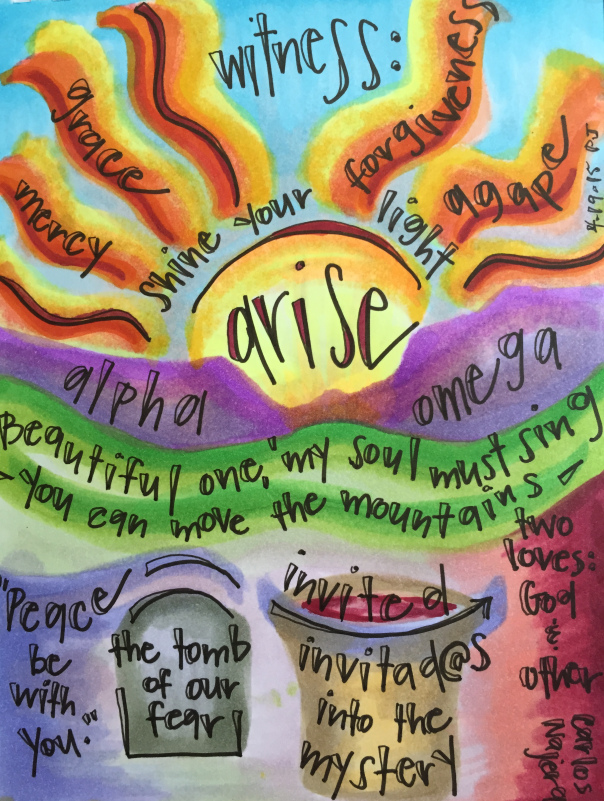 witness:
grace
forgiveness
mercy
agape
4-19-15 PJ
shine your
light
arise
alpha
omega
Beautiful one, my soul must sing
- you can move the mountains -
two
loves:
God
&
other
Carlos
Najera
"Peace
be
with
you."
the tomb
of our
fear
invited
invitad@s
into the
mystery